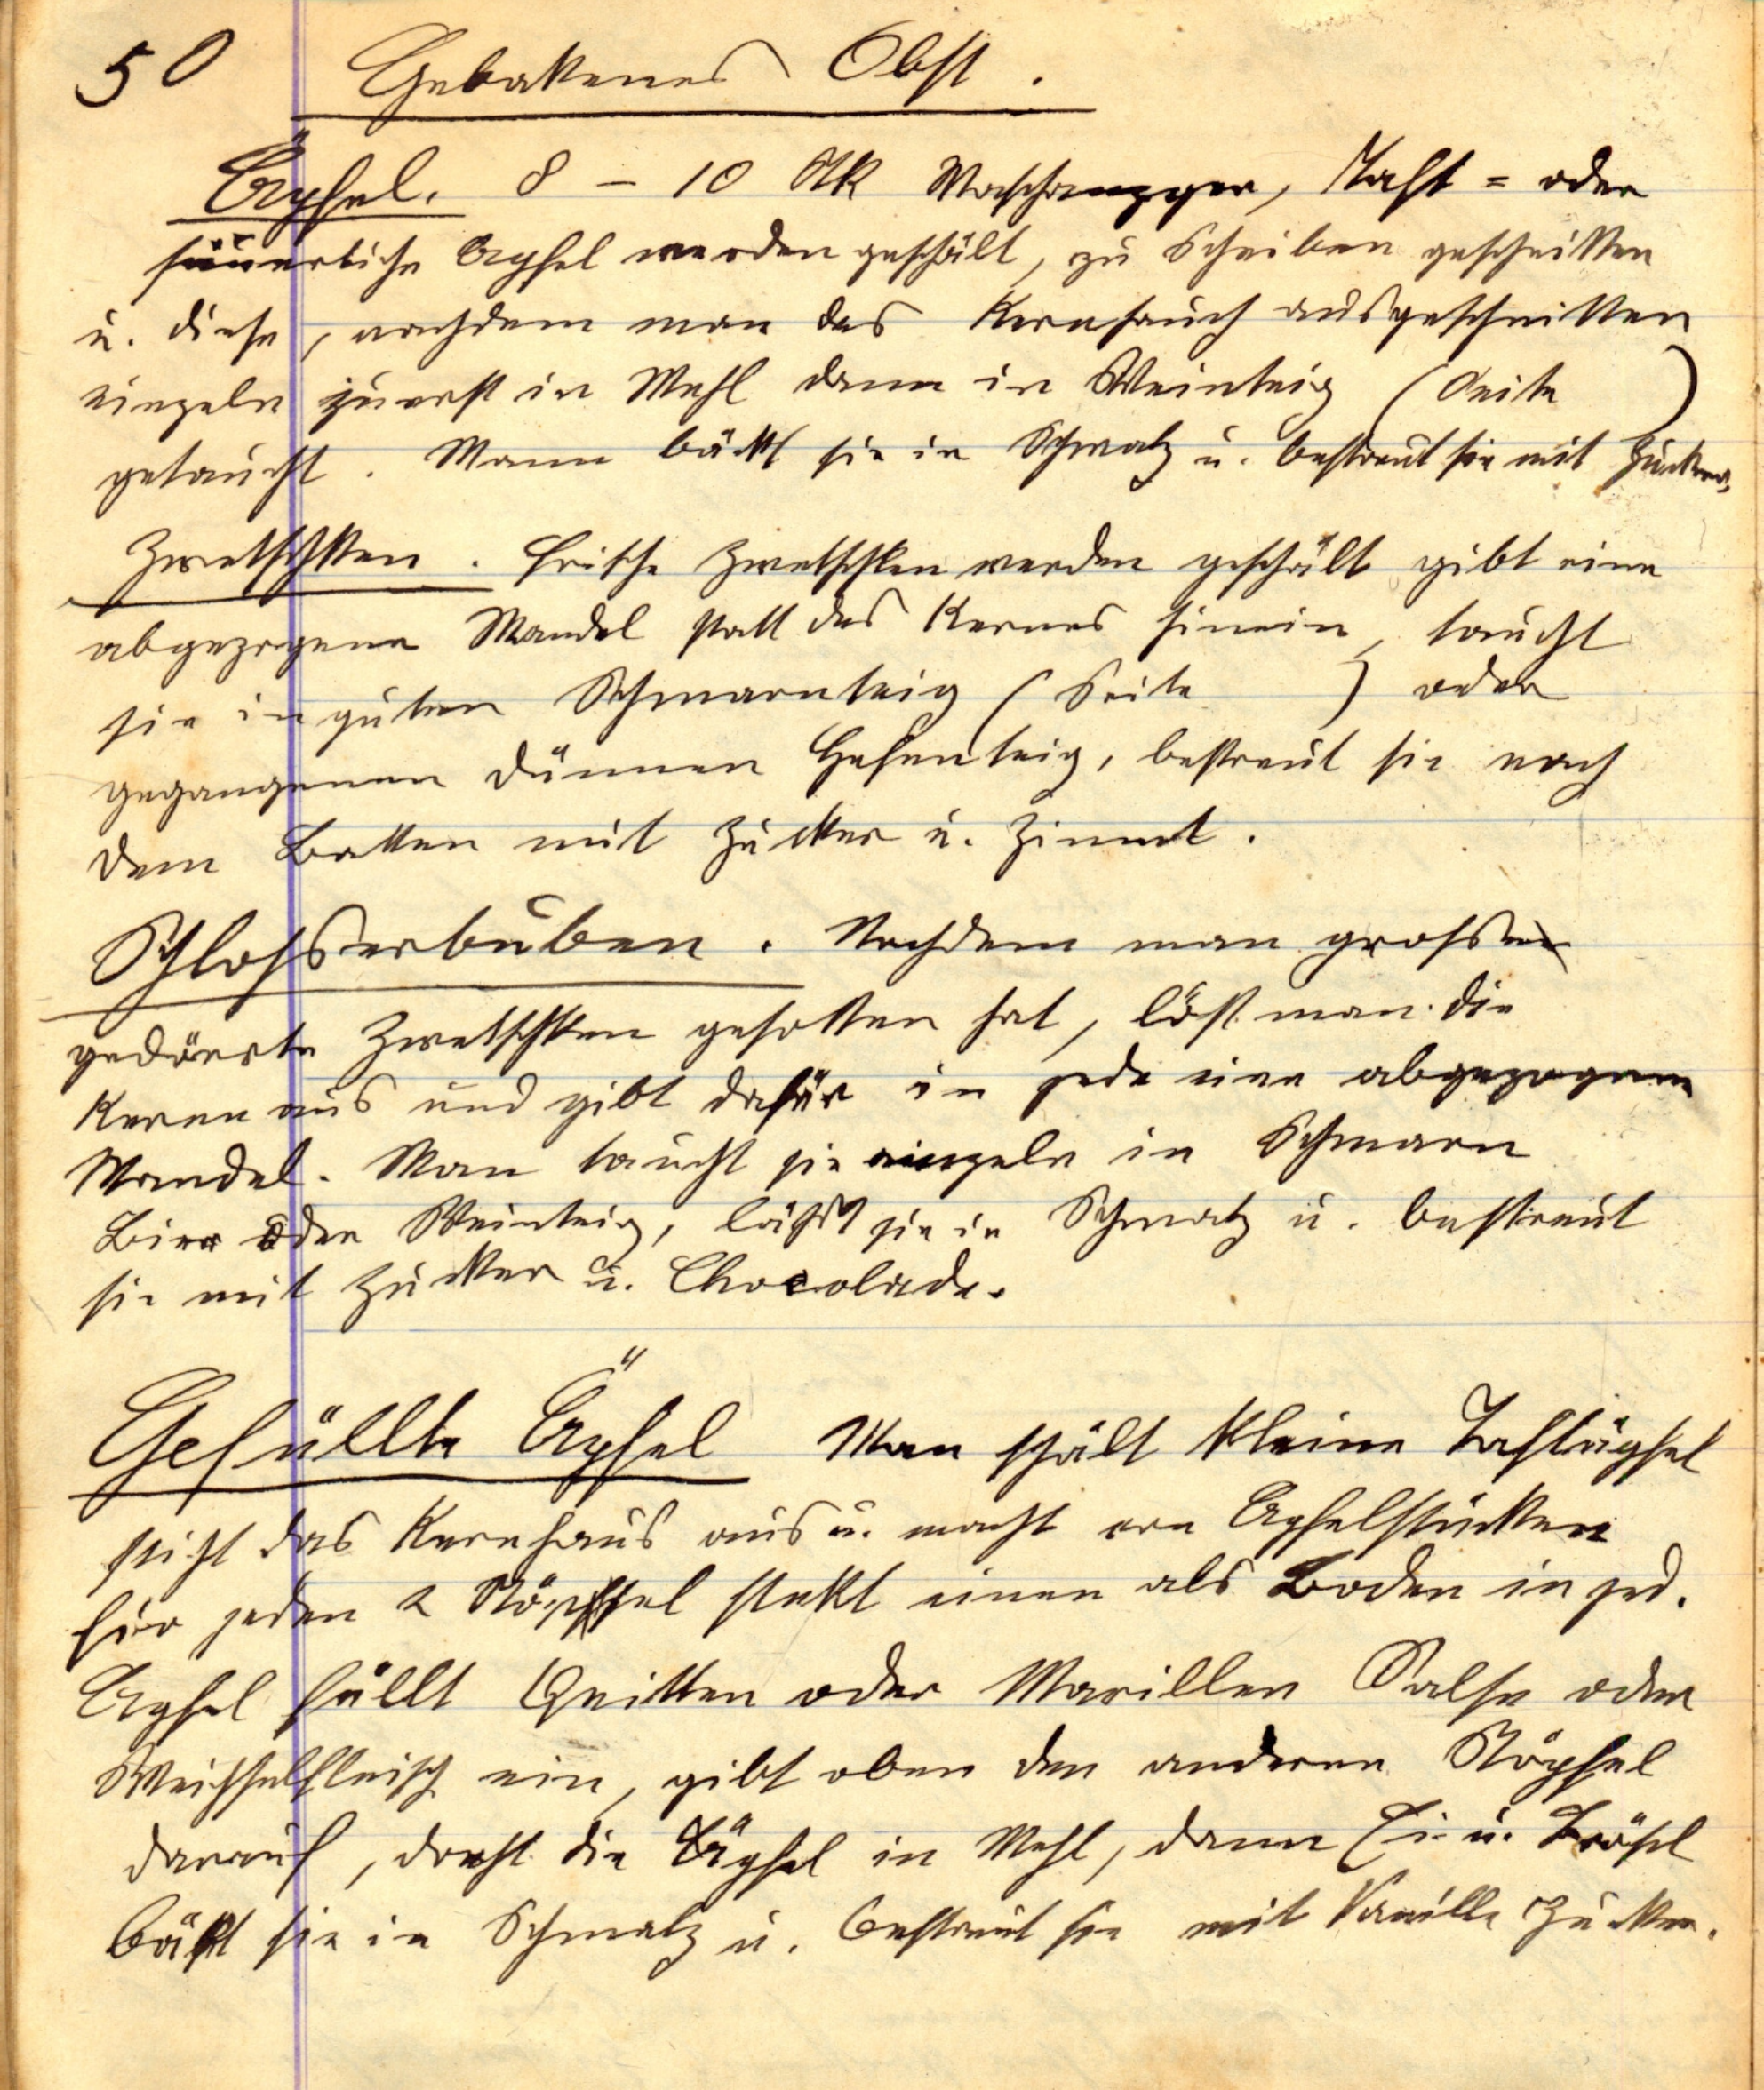 50 Gebakenes Obst.
Äpfel. 8 – 10 Stk Maschanzger, Taft = oder
säuerliche Äpfel werden geschält, zu Scheiben geschnitten
u. diese, nachdem man das Kernhauch ausgeschnitten
einzeln zuerst in Mehl dann in Weinteig (Seite )
getaucht. Mann bäckt sie in Schmalz u. bestreut sie mit Zucker.
Zwetschken. Frische Zwetschken werden geschält gibt eine
abgezogene Mandel statt des Kernes hinein, taucht
sie in guten Schmarnteig (Seite ) oder
gegangenen dünnen Hefenteig, bestreut sie nach
dem Backen mit Zucker u. Zimmt.
Schlosserbuben. Nachdem man grosse
gedörrte Zwetschken gesotten hat, löst man die
Kerne aus und gibt dafür in jede eine abgezogene
Mandel. Man taucht sie einzeln in Schmarn
Bier oder Weinteig, läßt sie in Schmalz u. bestreut
sie mit Zucker u. Chocolade.
Gefüllte Äpfel Man schält kleine Taftäpfel
sticht das Kernhaus aus u. macht von Apfelstücken
für jeden 2 Stöpsel stekt einen als Boden in jed.
Apfel füllt Quitten oder Marillen Salse oder
Weichselfleisch ein, gibt oben den anderen Stöpsel
darauf, dreht die Äpfel in Mehl, dann Ei u. Brösel
bäkt sie in Schmalz u. bestreut sie mit Vanille Zucker.